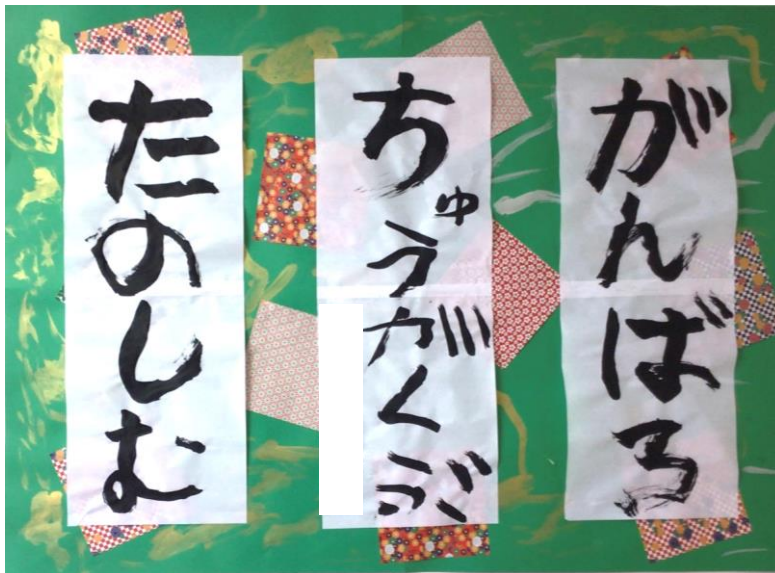 がんばろ
ちゅうがくぶ
たのしむ